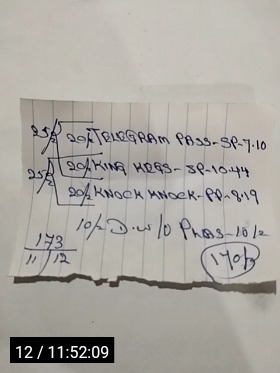 25/- 20/- TELEGRAM PASS-SP-7.10
25/- 20/- KING KEGS-SP-10.44
20/- KNOCK KNOCK-PP-8.19
10/- D.W/O PLAS-10/-
173
11 12
170/-
12 / 11:52:09